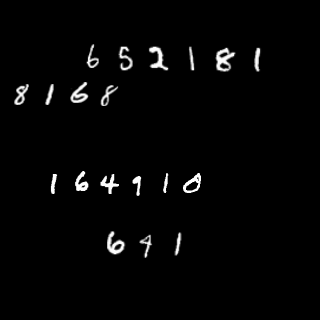 652181
8168
164910
641